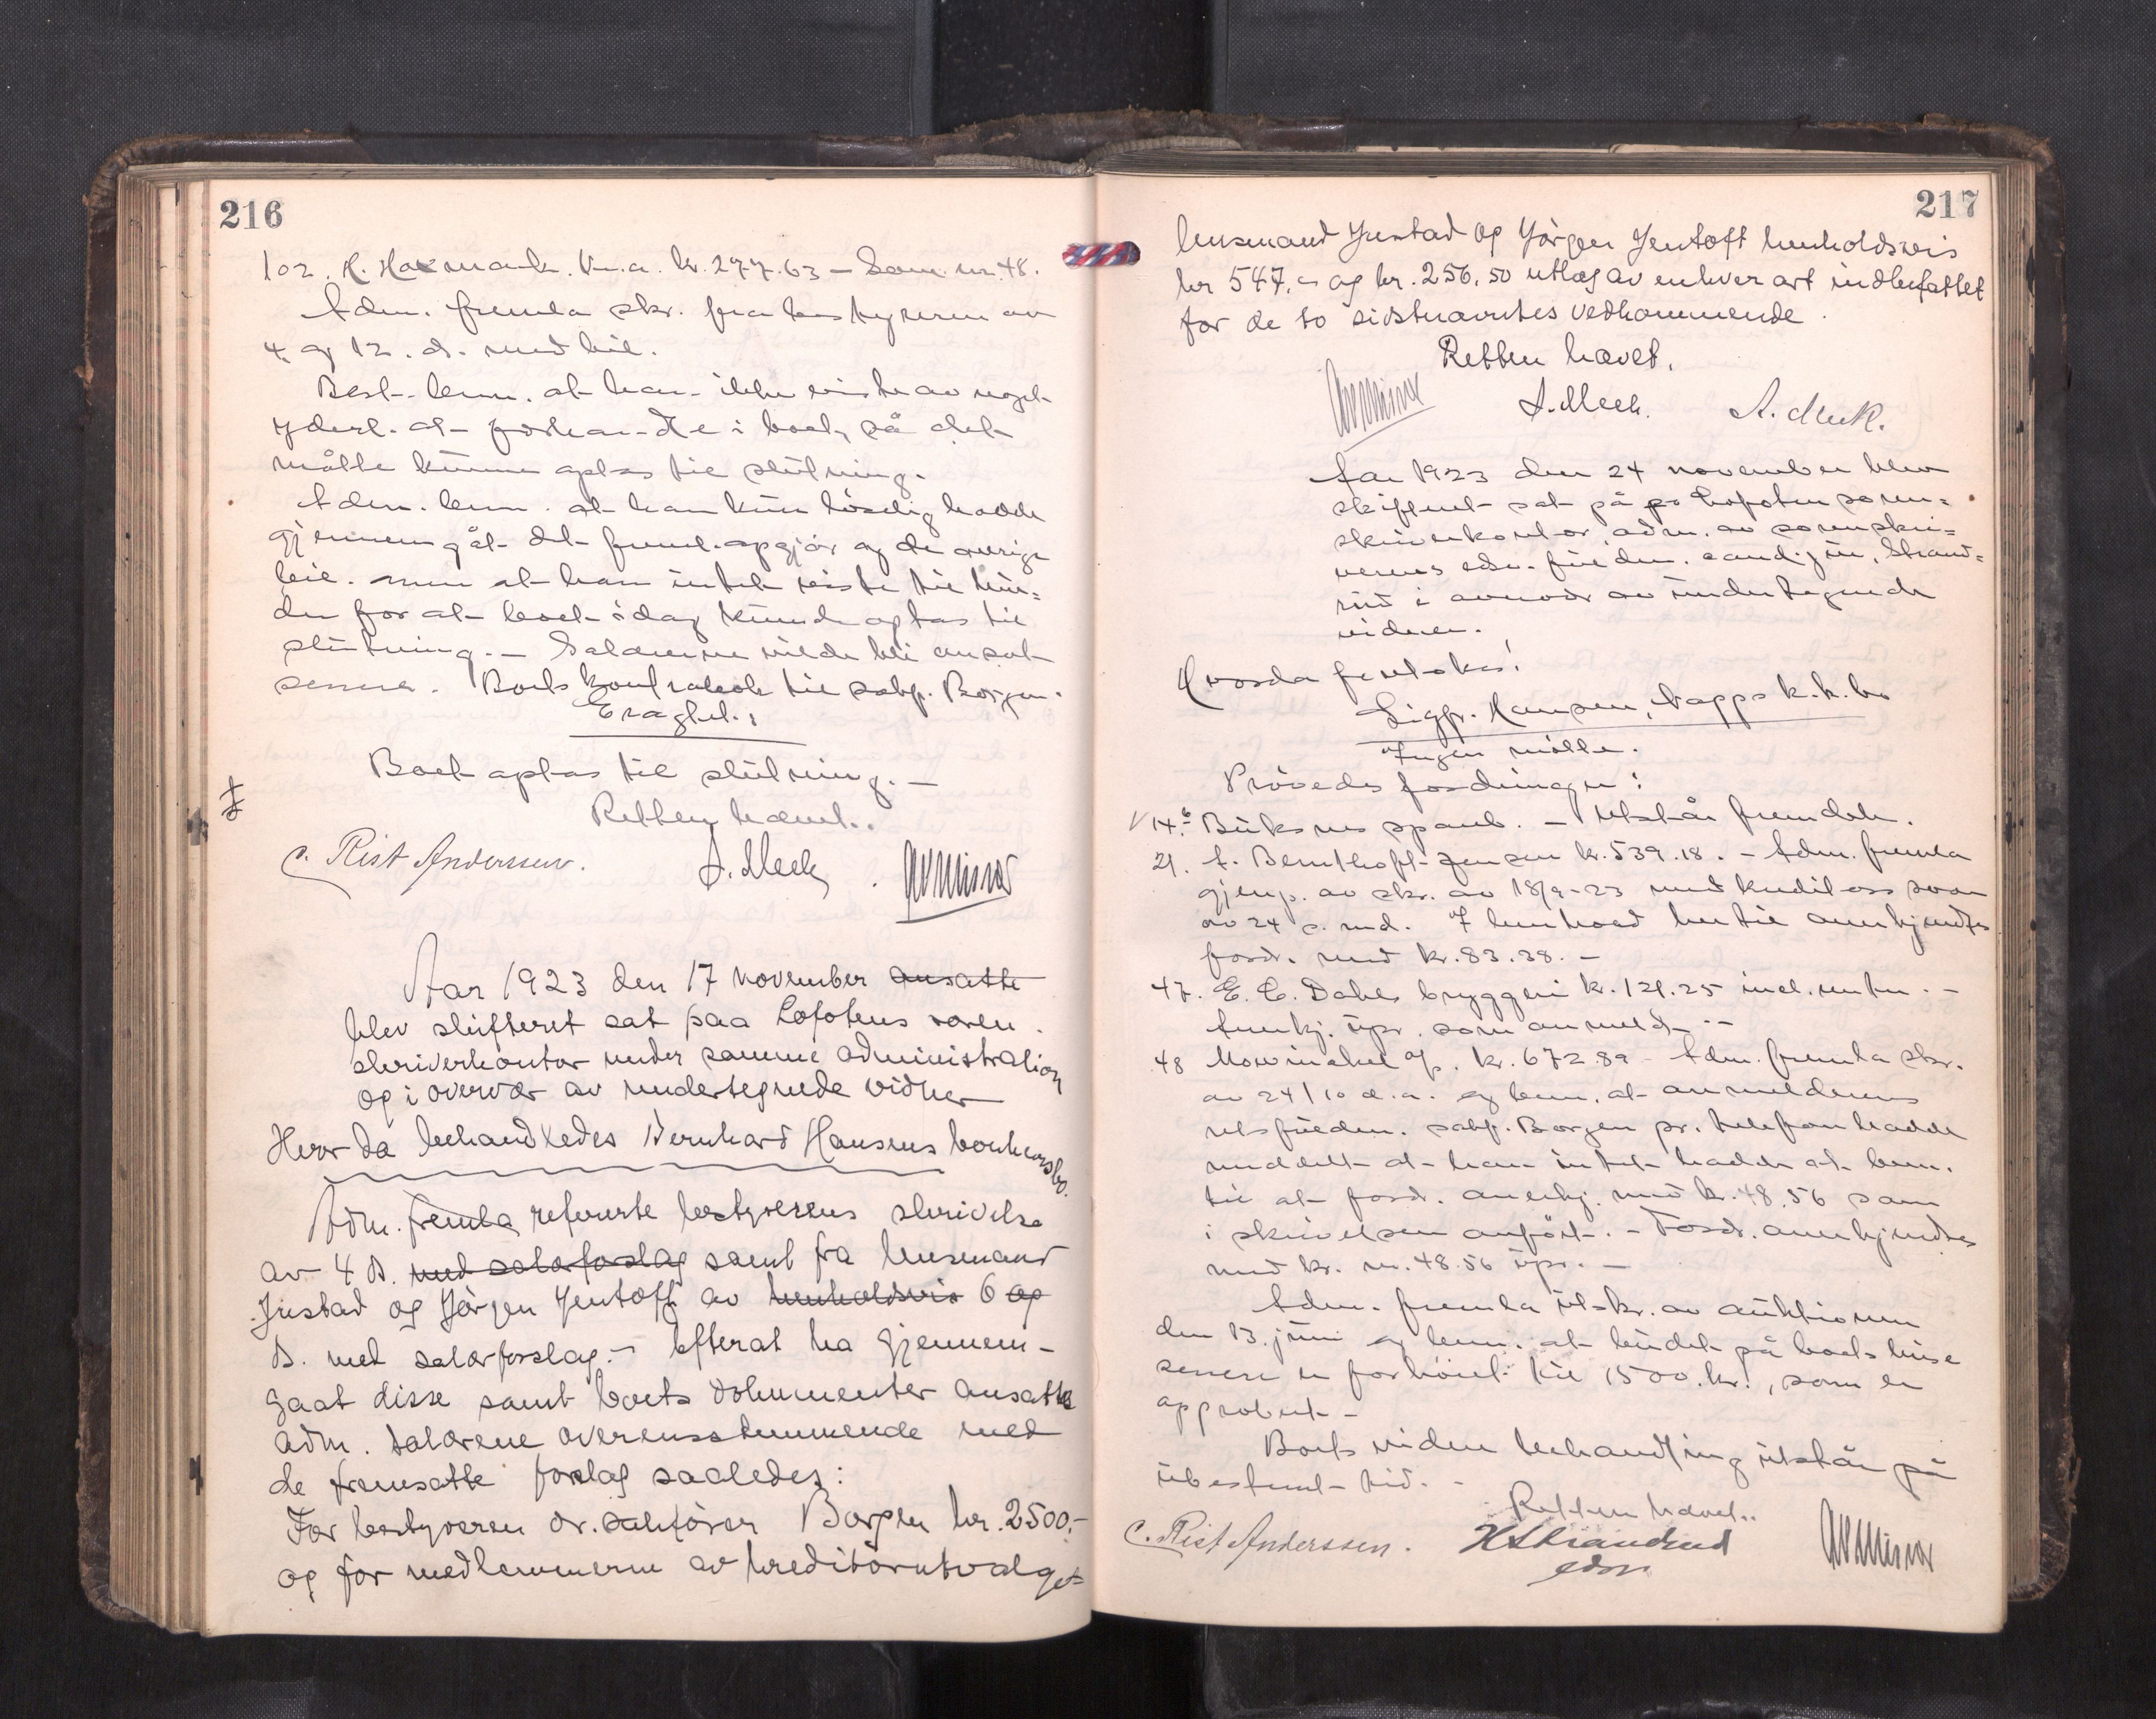 216
102. H. Haxmark. V.n.a. kr. 277.63 – Som nr. 48.
Adm. fremla skr. fra bestyreren av
4. og 12. ds. med bil.
Best. bem. at han ikke viste av noget
yderl. at forhandle i boet, så det
måtte kunne optas til slutning.
Adm. bem. at han kun løselig hadde
gjennemgåt det freml. opgjør og de øvrige
bil. men at han intet viste til hin=
der for at boet idag kunde optas til
slutning. – Salærerne vilde bli ansat
senere. Boets til sakf. Borgen.
Eragtet:
Boet optas til slutning. –
Retten hævet.
C. Rist Anderssen. A. Meek.
Aar 1923 den 17 november ansatte
blev skifteret sat paa Lofotens soren-
skriverkontor under samme administration
og i overvær av undertegnede vidner
Hvor da behandledes Bernhard Hansens konkursbo.
Adm. fremla refererte bestyrerens skrivelse
av 4 ds. med salærforslag samt fra lensmand
Justad og Jörgen Jentoft av henholdsvis 6 og
ds. med salærforslag. – Efterat ha gjennem-
gaat disse samt boets dokumenter ansatte
adm. salærene overensstemmende med
de fremsatte forslag saaledes:
For bestyreren or.sakförer Borgen kr. 2500.-
og for medlemmerne av kreditorutvalget
217
lensmand Justad og Jörgen Jentoft henholdsvis
kr 547.- og kr. 256,50 utlæg av enhver art indbefattet
for de to sidstnævntes vedkommende.
Retten hævet.
A. Meek. A. Meek.
Aar 1923 den 24 november blev
skifteret sat på Lofoten soren=
skriverkontor, adm. av sorenskri=
verens edsv. fuldm. cand. jur. Strand=
rud i overvær av undertegnede
vidner.
Hvorda foretokes:
Sigfr. Hansen, Napps k.k.bo
Ingen møtte.
Prøvedes fordringer:
14. Buksnes spareb. – Utstår fremdeles.
21. A. Bernthoft-Jensen kr. 539.18. – Adm. fremla
gjenp. av skr. av 18/9-23 med kreditors svar
av 24 s. md. I henhold hertil anerkjendtes
fordr. med kr. 83.38. –
47. E. C. Dahls bryggeri kr. 121.25 incl. renter. –
Anerkj. upr. som anmeldt. –
48 Mowinckel kr. 672.89 – Adm. fremla skr.
av 24/10 d.a. og bem. at anmelderens
retsfuldm. sakf. Borgen pr. telefon hadde
meddelt at han intet hadde at bem.
til at fordr. anerkj. med kr. 48.56 som
i skrivelsen anført. – Fordr. anerkjendtes
med kr. 48.56 upr. –
Adm. fremla utskr. av auktionen
den 13. juni og bem. at budet på boets huse
senere er forhøiet til 1500 kr., som er
approbert –
Boets videre behandling utstår på
ubestemt tid. –
Retten hævet.
C. Rist Anderssen. H Strandrud
edsv.